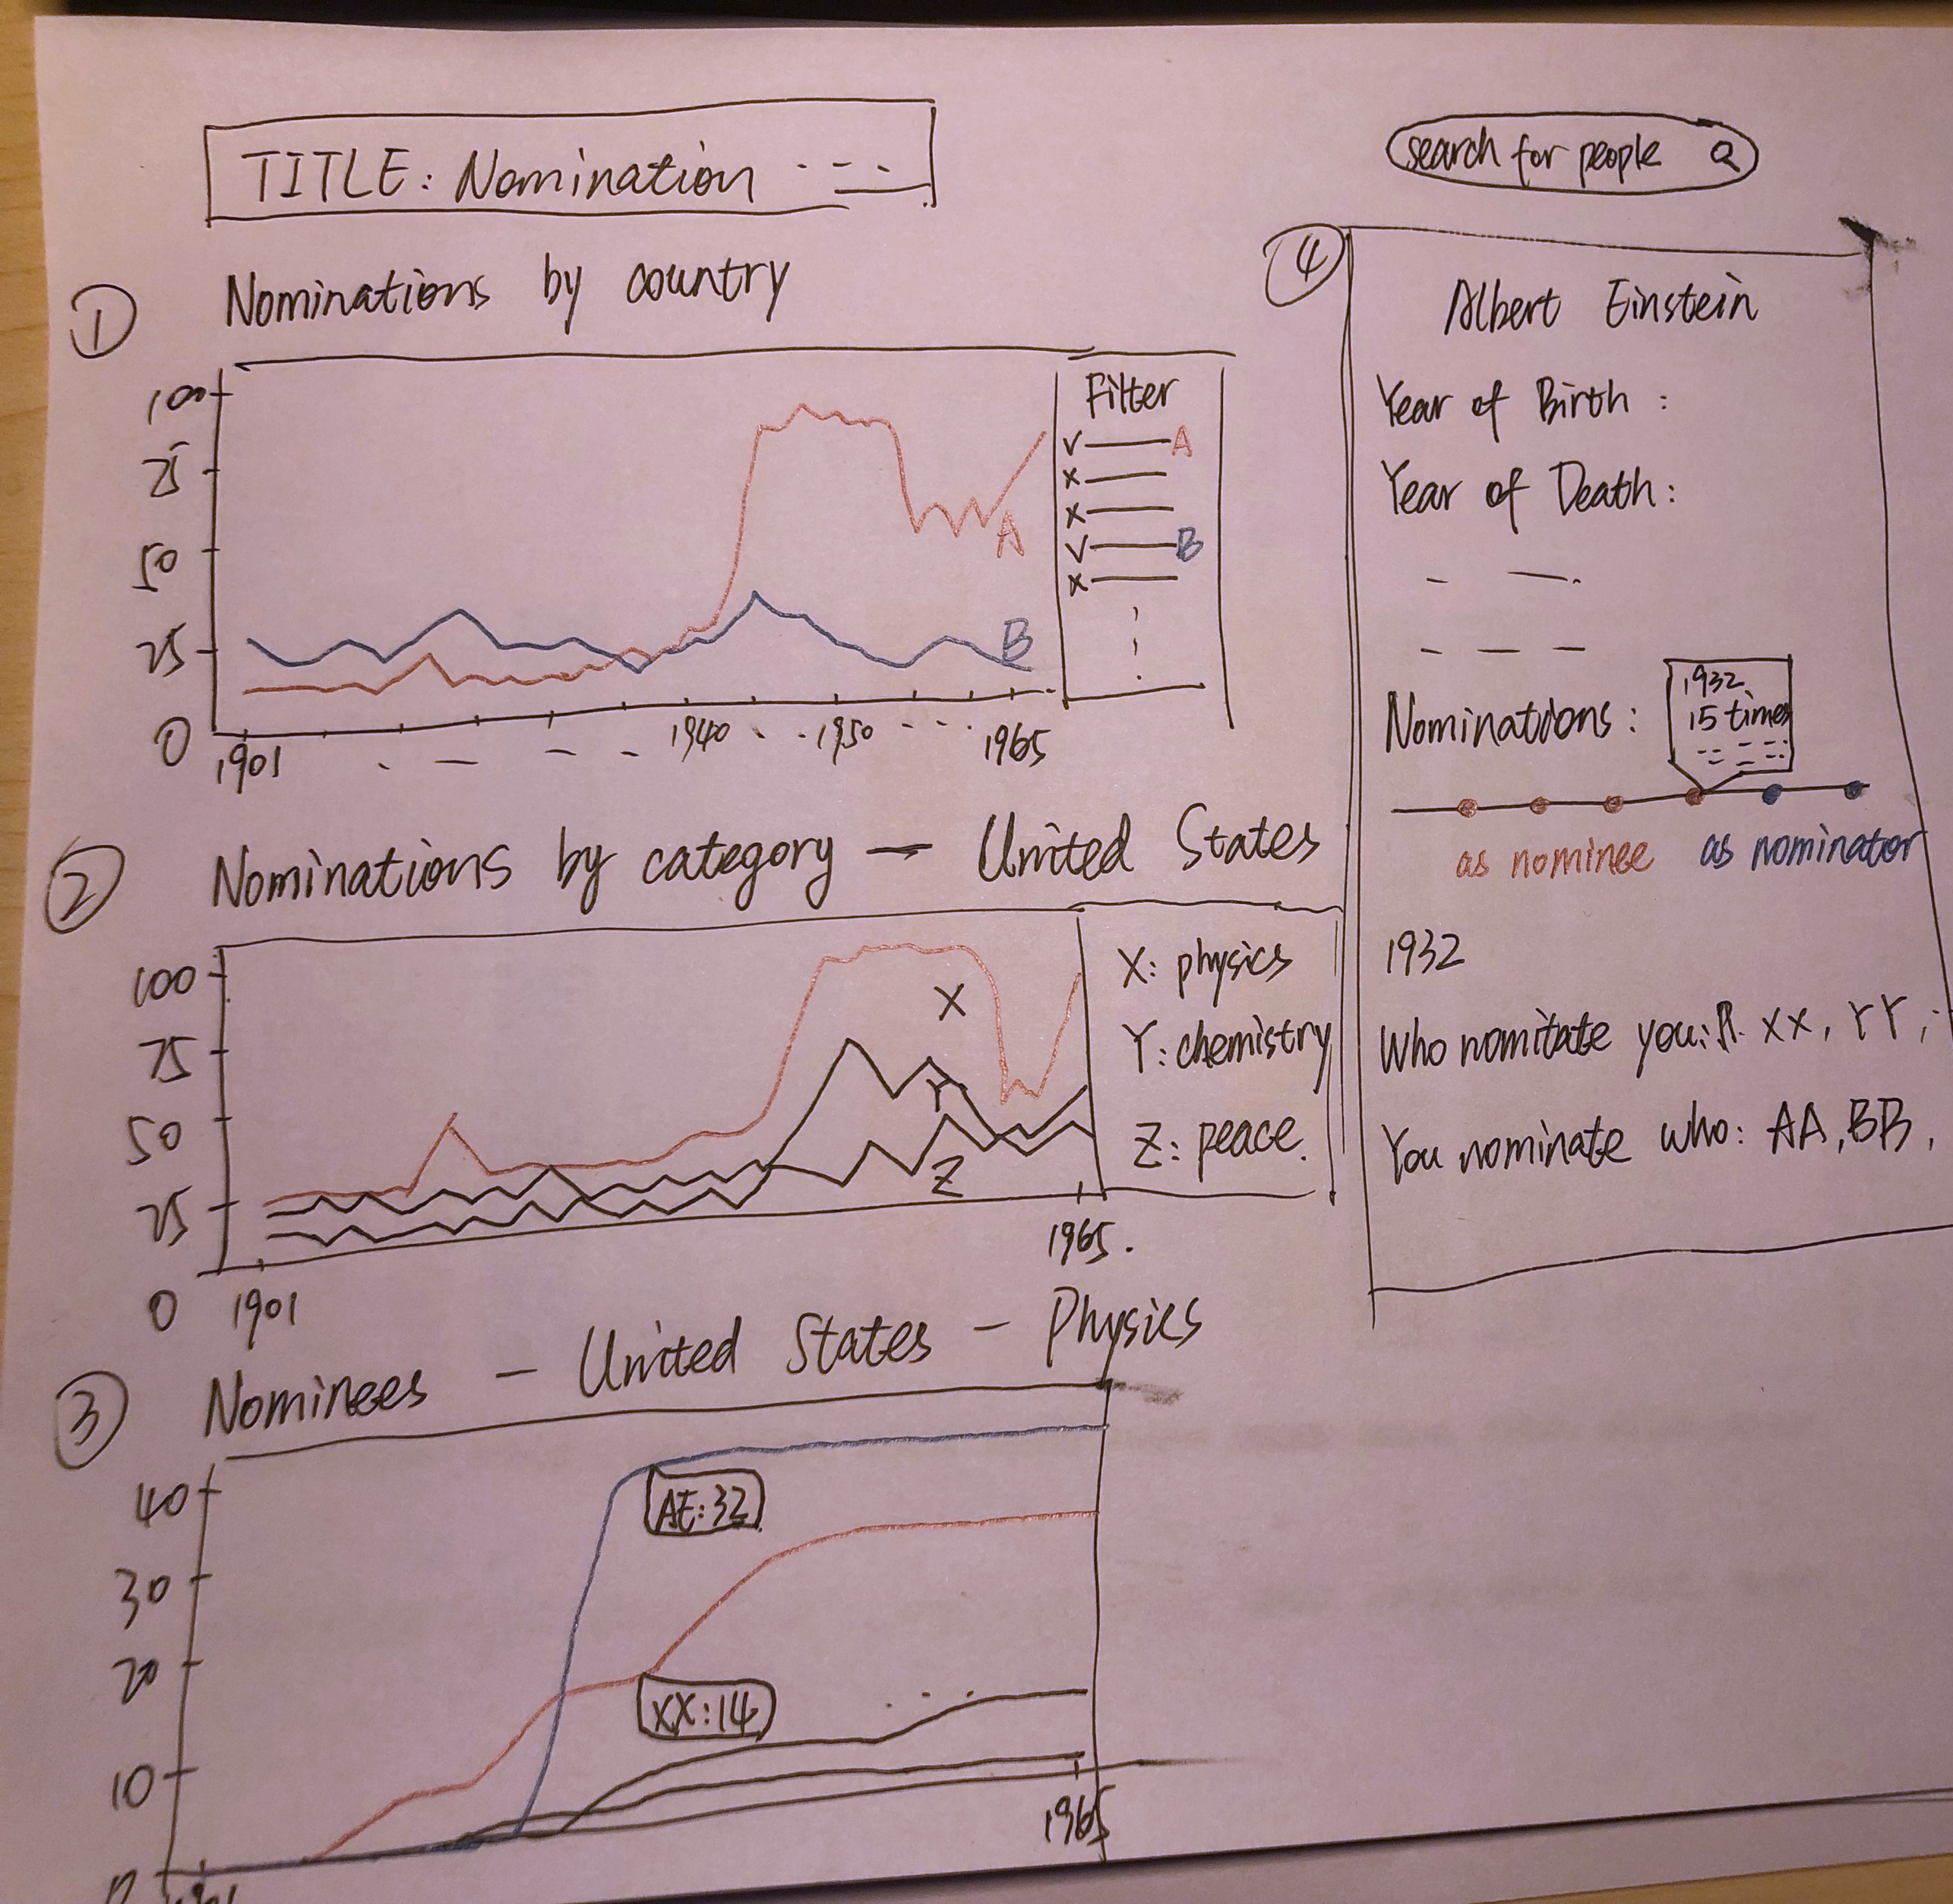 TITLE: Nomination
search for people
① Nominations by country
100
75
50
25
0
A
B
1901
1940
1950
1965
Filter
v A
x
x
v B
x
② Nominations by category — United States
100
75
50
25
0
X
Y
Z
1901
1965.
X: physics
Y: chemistry
Z: peace.
③ Nominees — United States — Physics
40
30
20
10
0
AE:32
XX:14
1901
1965
④
Albert Einstein
Year of Birth :
Year of Death :
Nominations :
1932
15 times
as nominee as nominator
1932
Who nomitate you: XX, YY,
You nominate who: AA, BB,